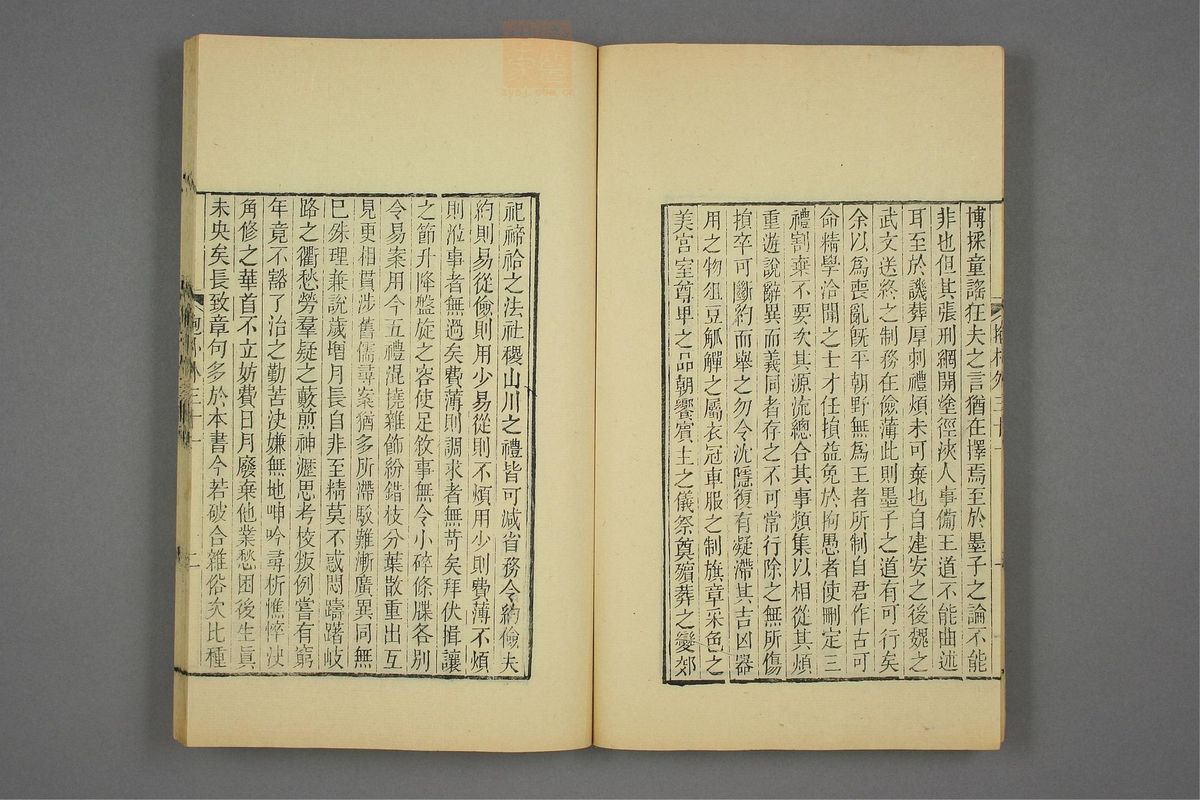 博採童謠狂夫之言猶在擇焉至於墨子之論不能
非也但其張刑網開塗徑浹人事備王道不能曲述
耳至於譏葬厚刺禮煩未可棄也自建安之後魏之
武文送終之制務在儉薄此則墨子之道有可行矣
余以爲喪亂既平朝野無爲王者所制自君作古可
命精學洽聞之士才任損益免於拘愚者使刪定三
禮割棄不要次其源流總合其事類集以相從其煩
重遊說辭異而義同者存之不可常行除之無所傷
損卒可斷約而舉之勿令沈隱復有凝滯其吉凶器
用之物俎豆觚觶之屬衣冠車服之制旗章采色之
美宮室尊卑之品朝饗賓主之儀祭奠殯葬之變郊
祀禘祫之法社稷山川之禮皆可減省務令約儉夫
約則易從儉則用少易從則不煩用少則費薄不煩
則涖事者無過矣費薄則調求者無苛矣拜伏揖讓
之節升降盤旋之容使足敘事無令小碎條牒各別
令易案用今五禮混撓雜飾紛錯枝分葉散重出互
見更相貫涉舊儒尋案猶多所滯駮難漸廣異同無
已殊理兼說歲增月長自非至精莫不惑悶躊躇岐
路之衢愁勞羣疑之藪煎神瀝思考校叛例嘗有窮
年竟不豁了治之勤苦決嫌無地呻吟尋析憔悴決
角修之華首不立妨費日月廢棄他業愁困後生眞
未央矣長致章句多於本書今若破合雜俗次比種
抱朴外三十一
二